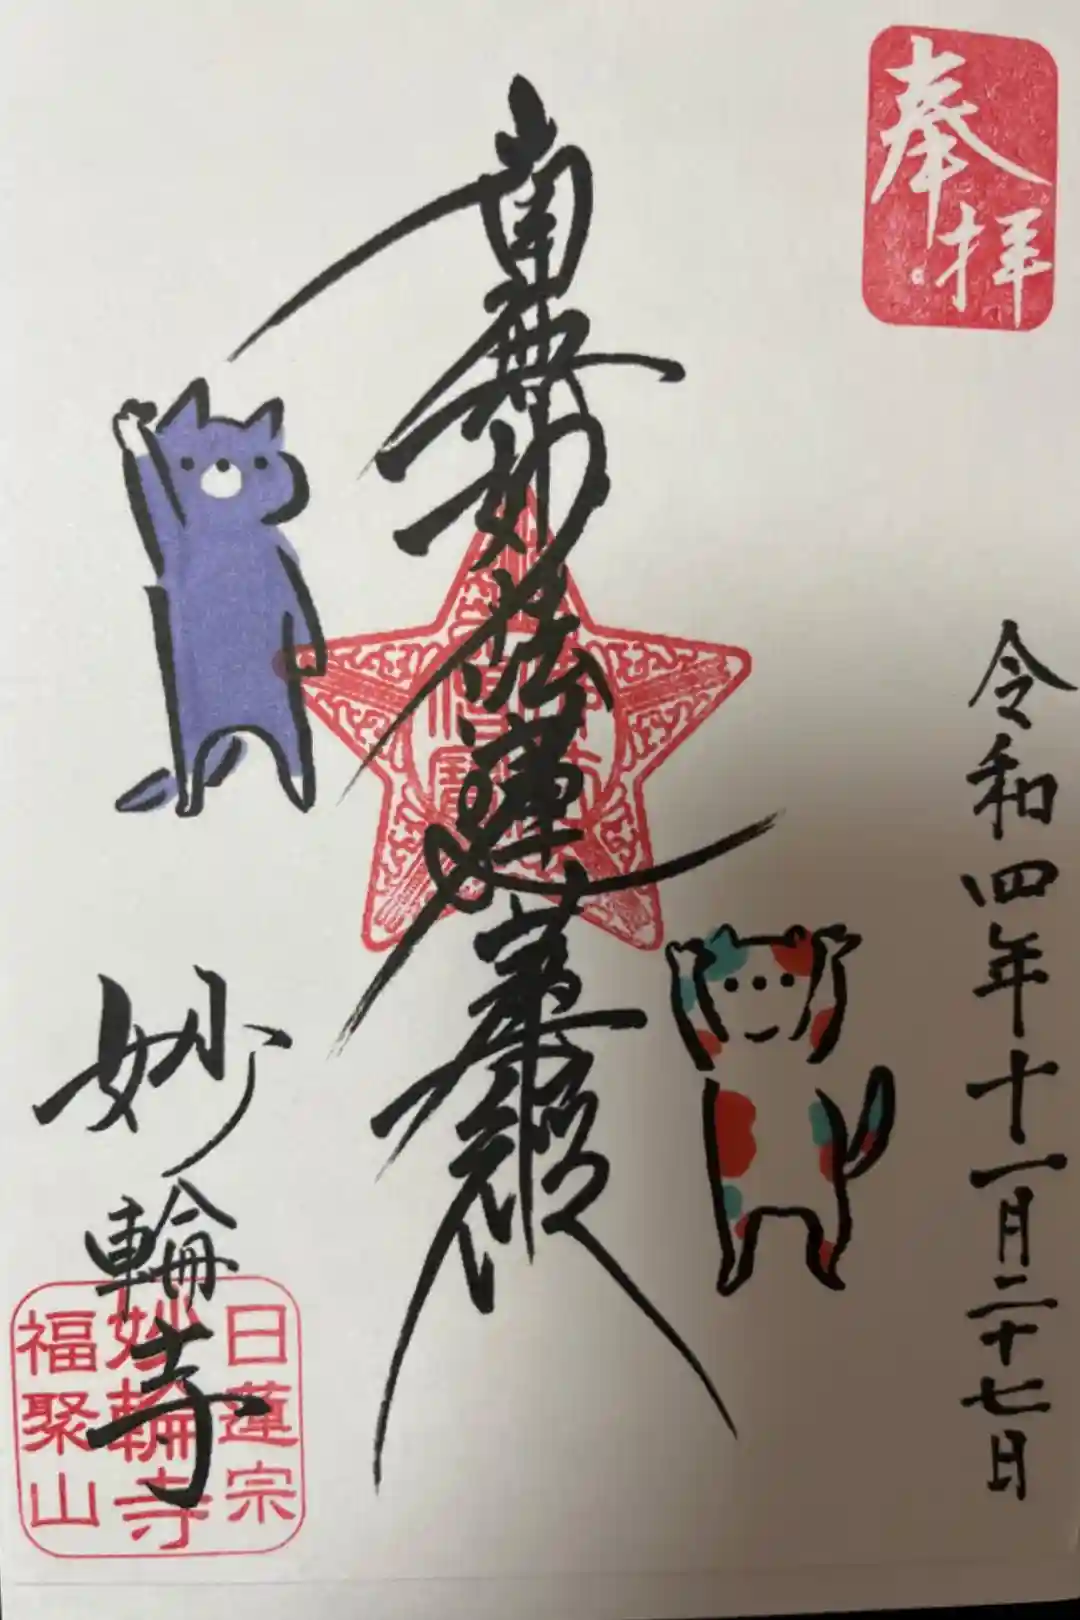 奉拝
令和四年十一月二十七日
南無妙法蓮華経
妙輪寺
日蓮宗
妙輪寺
福聚山